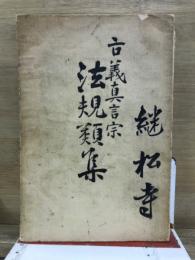 継松寺
古義真言宗
法規類集